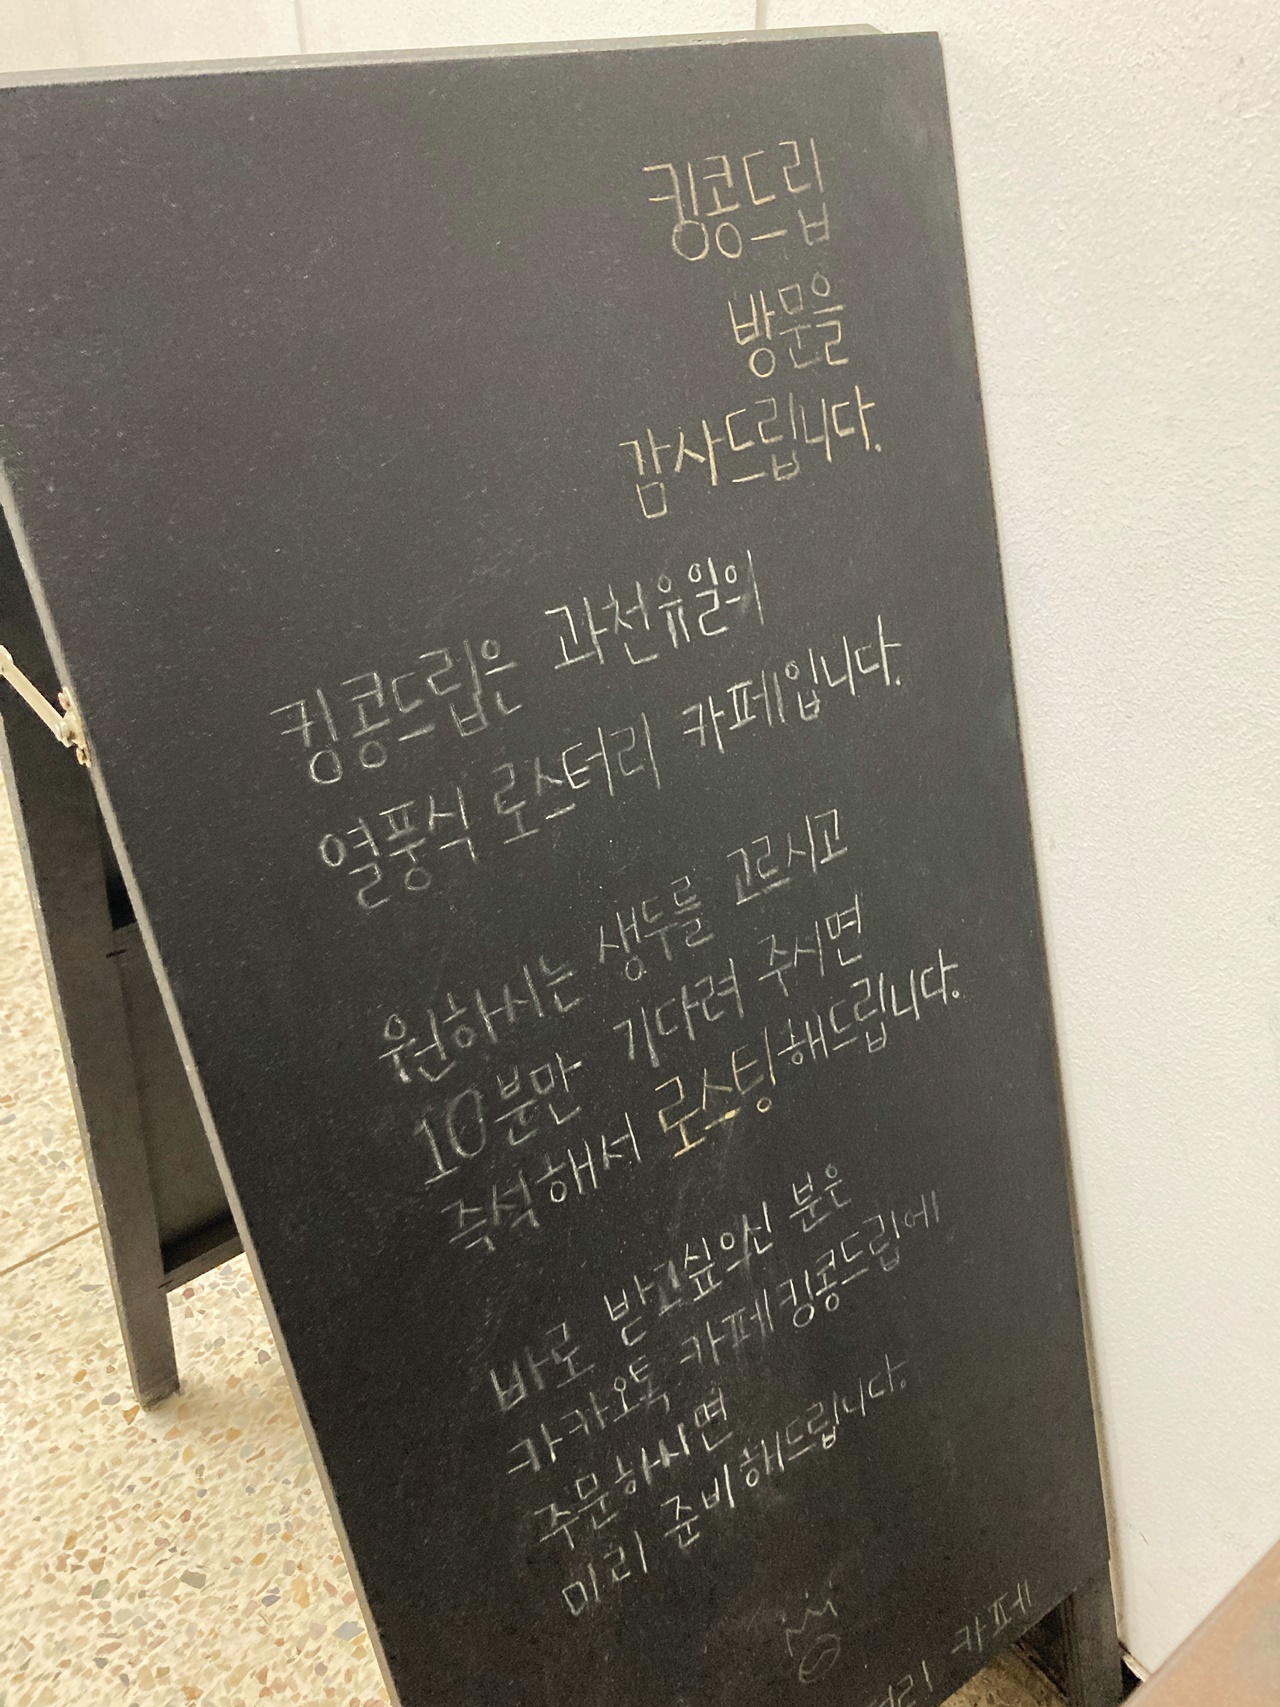 킹콩드립
방문을
감사드립니다.
킹콩드립은 과천유일의
열풍식 로스터리 카페입니다.
원하시는 생두를 고르시고
10분만 기다려 주시면
즉석해서 로스팅해드립니다.
바로 받고싶으신 분은
카카오톡 카페킹콩드립에
주문하시면
미리 준비해드립니다.
카페